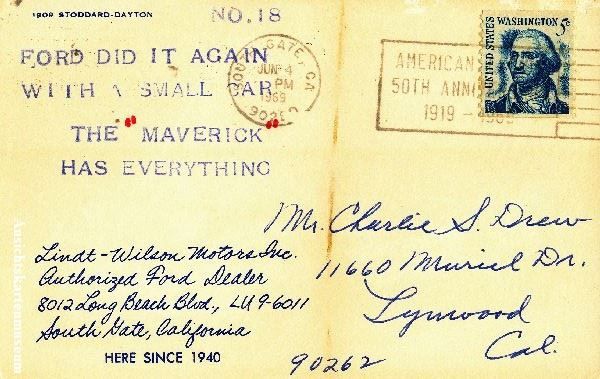 1909 STODDARD-DAYTON
NO. 18
FORD DID IT AGAIN
WITH A SMALL CAR
THE "MAVERICK"
HAS EVERYTHING
SOUTH GATE, CA
JUN 4
PM
1969
AMERICAN
50TH
1919 - 1969
UNITED STATES
WASHINGTON 5¢
Mr. Charlie S. Drew
11660 Muriel Dr.
Lynwood
Cal.
90262
Lindt-Wilson Motors Inc.
Authorized Ford Dealer
8012 Long Beach Blvd., LU 9-6011
South Gate, California
HERE SINCE 1940